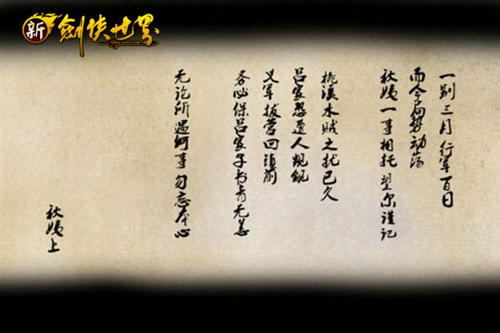 新劍侠世界
一别三月 行军百日
而今局势动荡
秋姨一事相托 望尔谨记
桃溪水贼之扰已久
吕家恐遭人觊觎
义军拔营回返前
务必保吕家子书青无恙
无论所遇何事勿忘本心
秋姨上